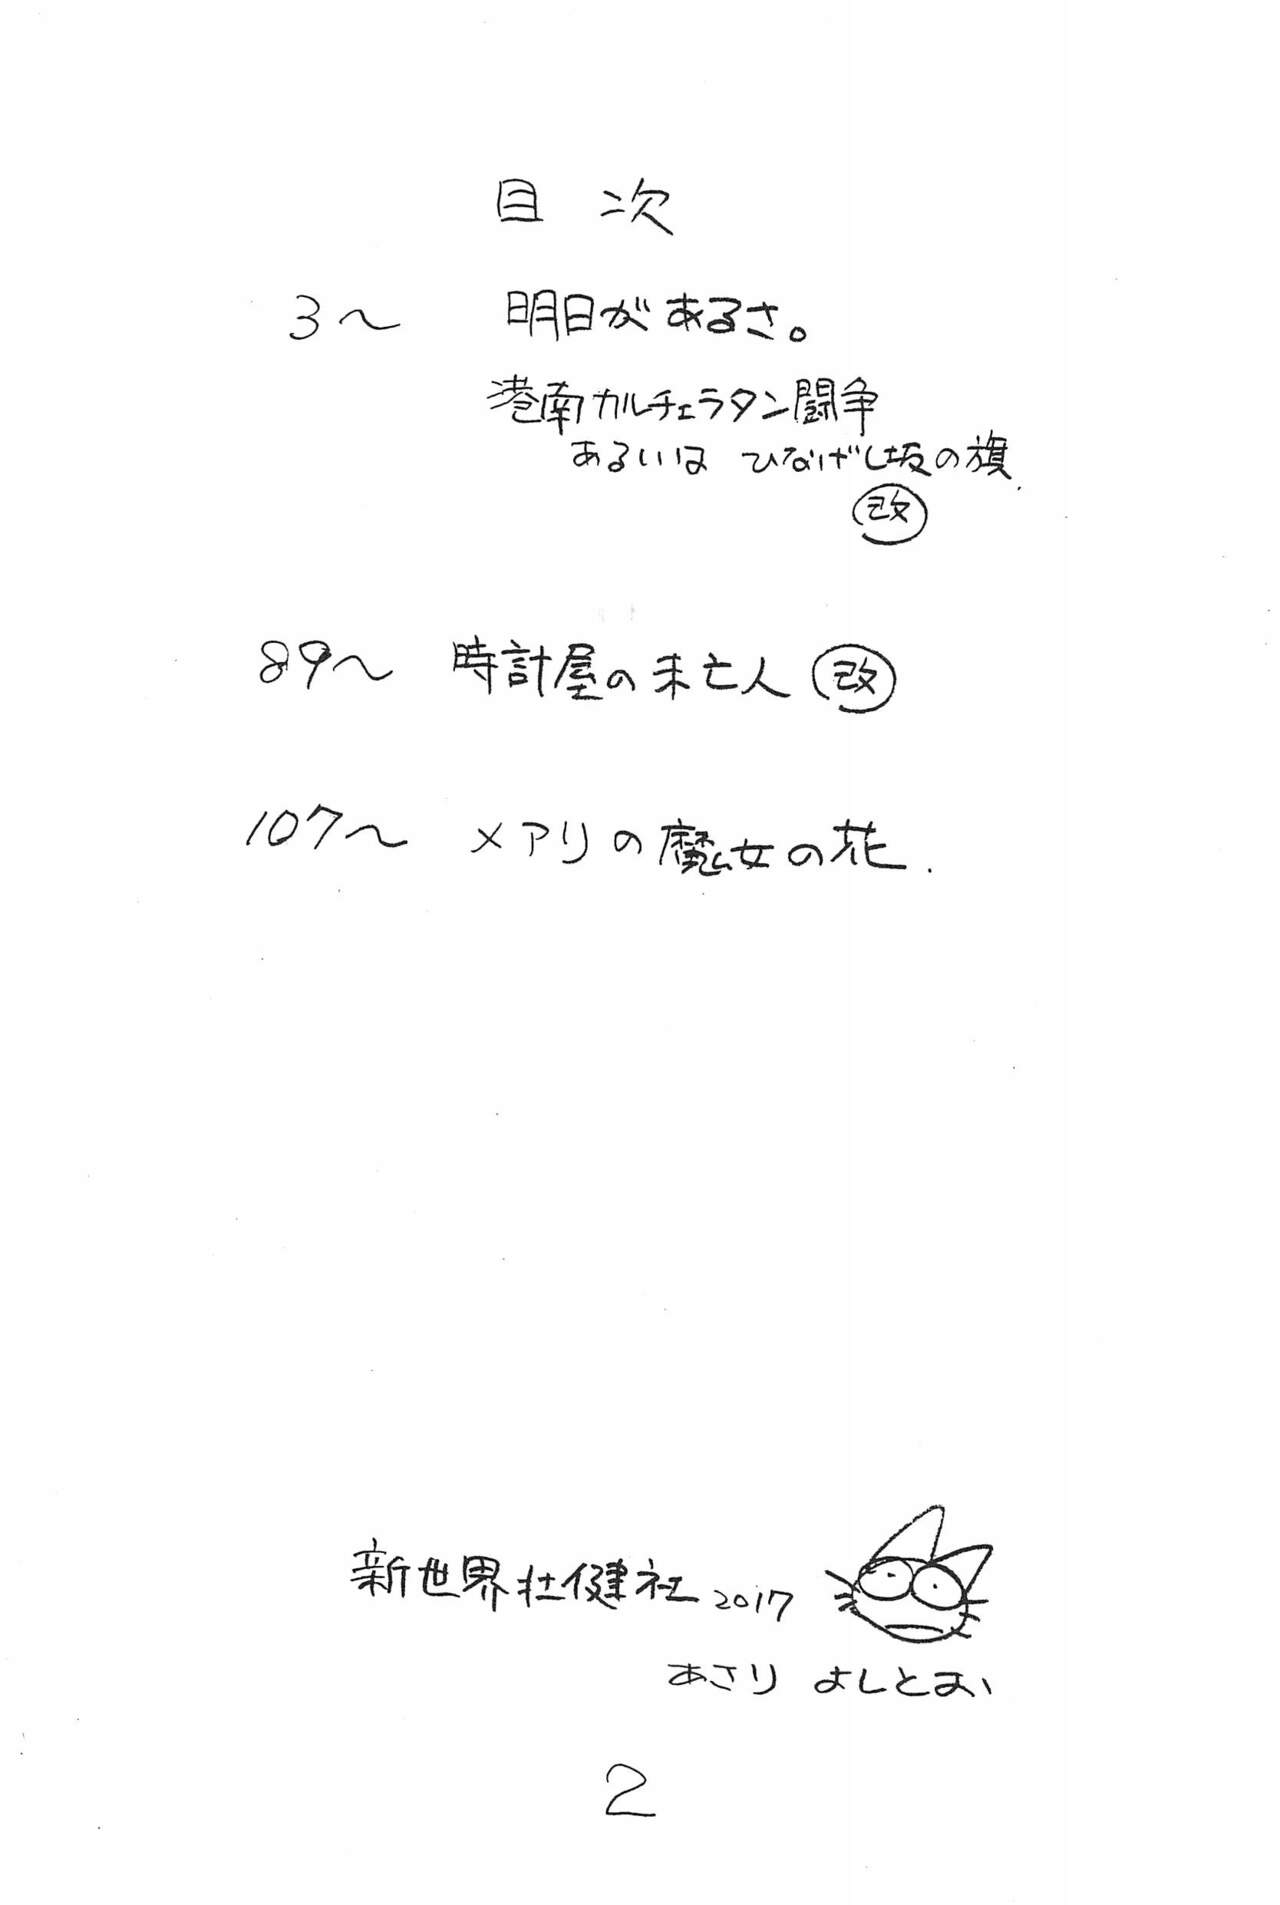 目次
3〜 明日があるさ。
港南カルチェラタン闘争
あるいは ひなげし坂の旗.
改
89〜 時計屋の未亡人 改
107〜 メアリの魔女の花.
新世界壮健社 2017
あさり よしとおい
2